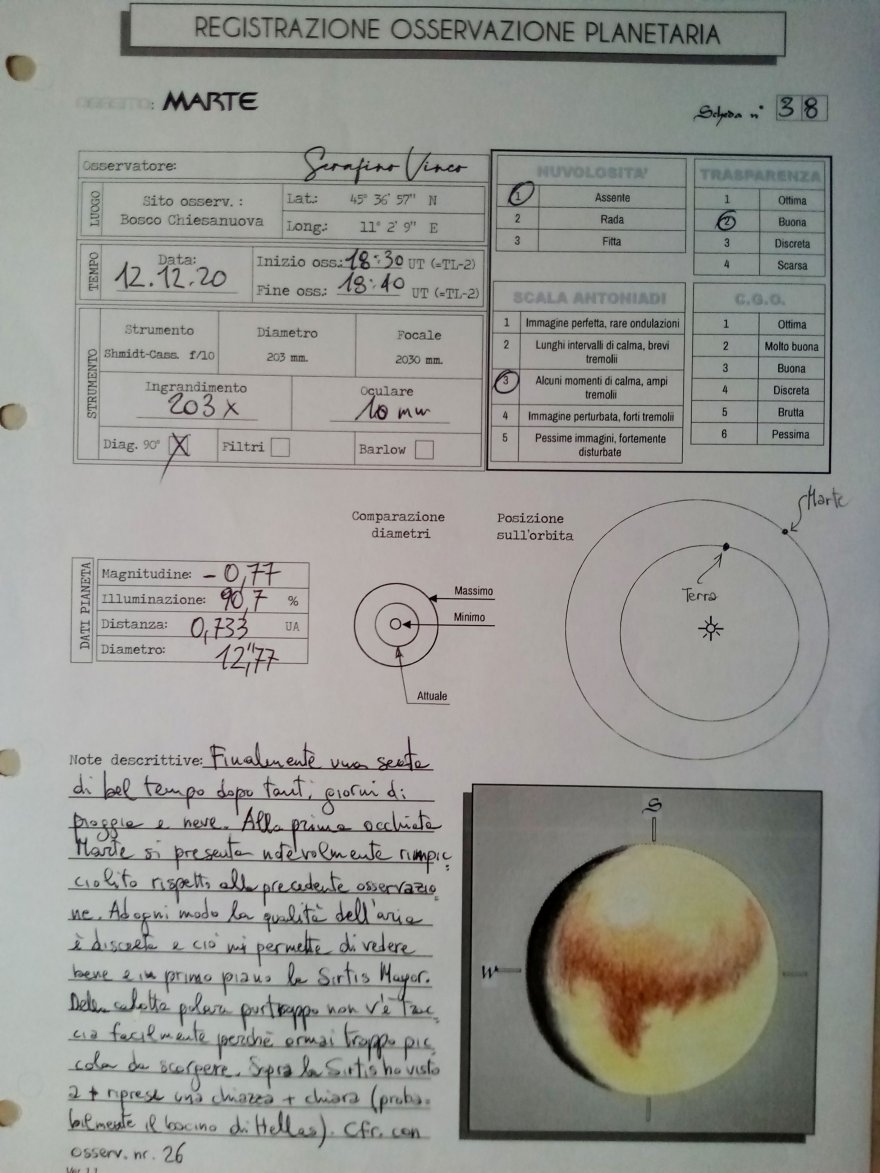 REGISTRAZIONE OSSERVAZIONE PLANETARIA
OGGETTO: MARTE
Scheda n° 38
Osservatore: Serafino Vinco
LUOGO
Sito osserv. :
Bosco Chiesanuova
Lat.: 45° 36' 57" N
Long.: 11° 2' 9" E
TEMPO
Data:
12.12.20
Inizio oss.: 18:30 UT (=TL-2)
Fine oss.: 18:40 UT (=TL-2)
STRUMENTO
Strumento
Shmidt-Cass. f/10
Diametro
203 mm.
Focale
2030 mm.
Ingrandimento
203 x
Oculare
10 mm
Diag. 90° X
Filtri
Barlow
NUVOLOSITA'
1 Assente
2 Rada
3 Fitta
TRASPARENZA
1 Ottima
2 Buona
3 Discreta
4 Scarsa
SCALA ANTONIADI
1 Immagine perfetta, rare ondulazioni
2 Lunghi intervalli di calma, brevi
tremolii
3 Alcuni momenti di calma, ampi
tremolii
4 Immagine perturbata, forti tremolii
5 Pessime immagini, fortemente
disturbate
C.G.O.
1 Ottima
2 Molto buona
3 Buona
4 Discreta
5 Brutta
6 Pessima
DATI PIANETA
Magnitudine: -0,77
Illuminazione: 90,7 %
Distanza: 0,733 UA
Diametro: 12",77
Comparazione
diametri
Massimo
Minimo
Attuale
Posizione
sull'orbita
Marte
Terra
Note descrittive: Finalmente una serata
di bel tempo dopo tanti giorni di
pioggia e neve. Alla prima occhiata
Marte si presenta notevolmente rimpic
ciolito rispetto alla precedente osservazio
ne. Ad ogni modo la qualità dell'aria
è discreta e ciò mi permette di vedere
bene e in primo piano la Sirtis Mayor.
Della calotta polare purtroppo non v'è trac
cia facilmente perchè ormai troppo pic
cola da scorgere. Sopra la Sirtis ho visto
a + riprese una chiazza + chiara (proba
bilmente il bacino di Hellas). Cfr. con
osserv. nr. 26
Ver 1.1
S
W